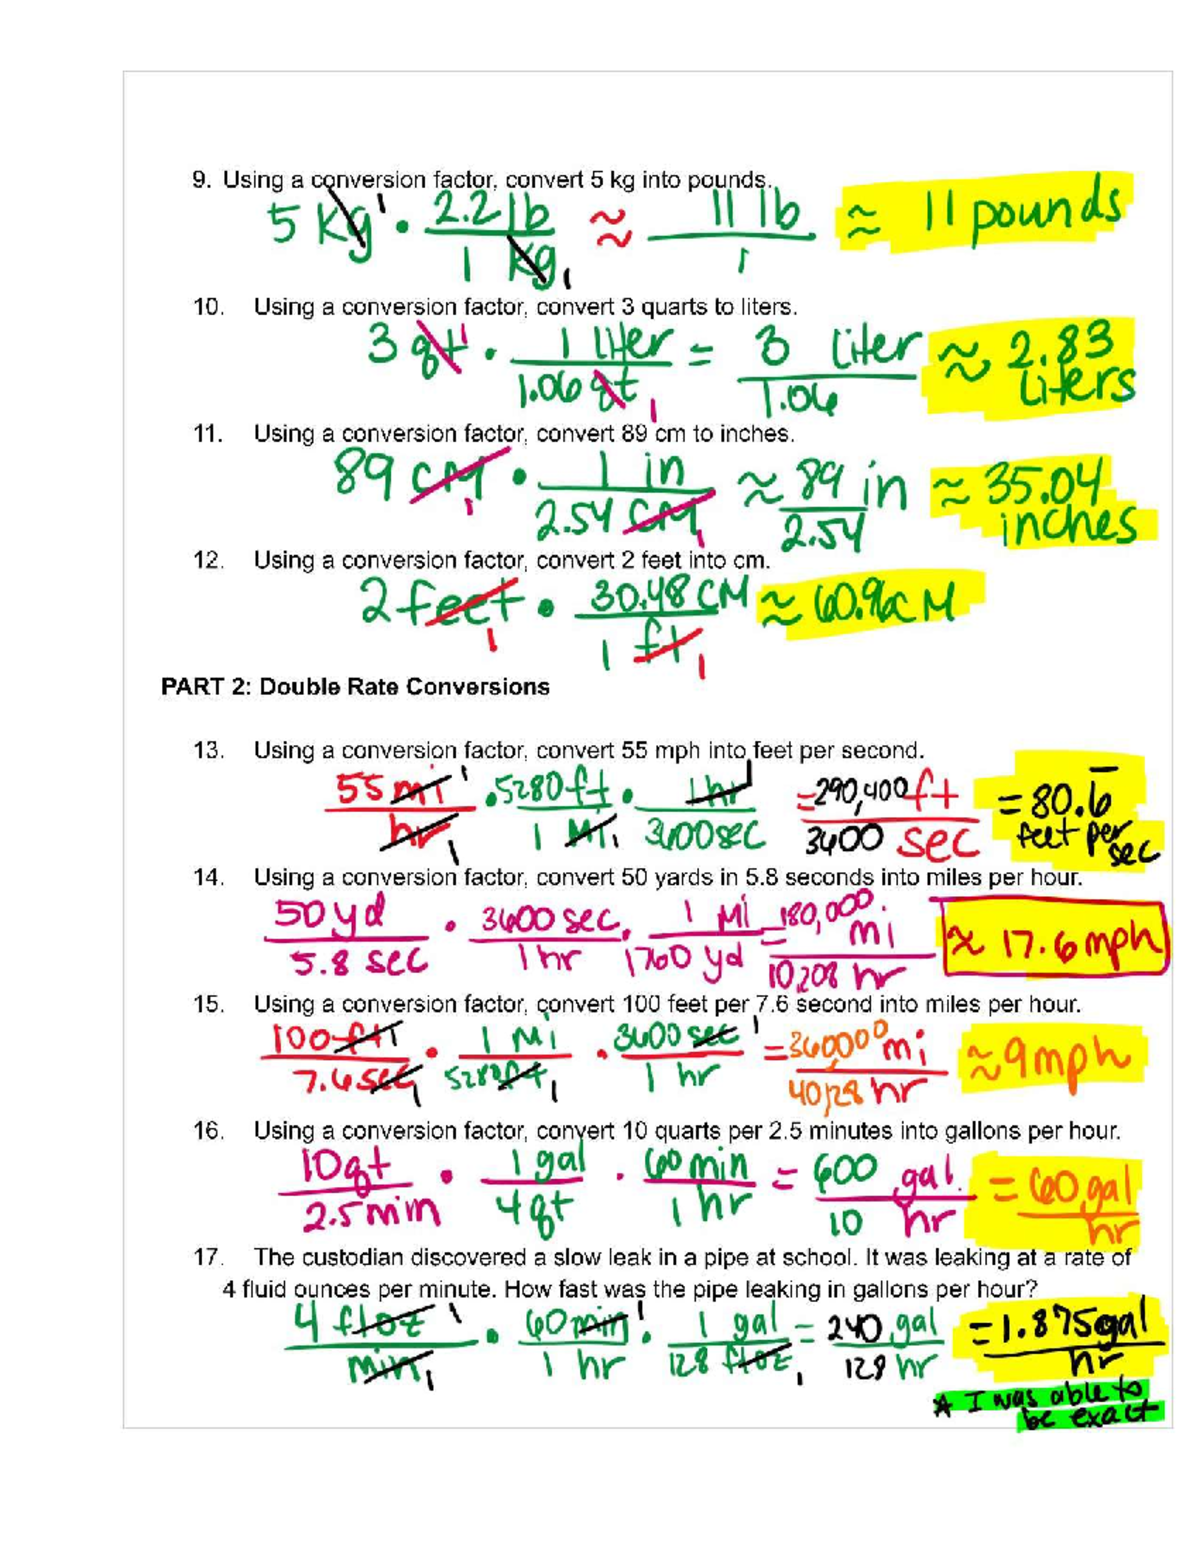 9. Using a conversion factor, convert 5 kg into pounds.
5 kg 1 · 2.2 lb / 1 kg 1 ≈ 11 lb / 1 ≈ 11 pounds
10. Using a conversion factor, convert 3 quarts to liters.
3 qt 1 · 1 liter / 1.06 qt 1 = 3 liter / 1.06 ≈ 2.83 liters
11. Using a conversion factor, convert 89 cm to inches.
89 cm 1 · 1 in / 2.54 cm 1 ≈ 89 in / 2.54 ≈ 35.04 inches
12. Using a conversion factor, convert 2 feet into cm.
2 feet 1 · 30.48 CM / 1 ft 1 ≈ 60.96 CM
PART 2: Double Rate Conversions
13. Using a conversion factor, convert 55 mph into feet per second.
55 mi 1 / hr 1 · 5280 ft / 1 Mi 1 · 1 hr 1 / 3600 sec = 290,400 ft / 3600 sec = 80.6̅ feet per sec
14. Using a conversion factor, convert 50 yards in 5.8 seconds into miles per hour.
50 yd / 5.8 sec · 3600 sec / 1 hr · 1 Mi / 1760 yd = 180,000 mi / 10,208 hr ≈ 17.6 mph
15. Using a conversion factor, convert 100 feet per 7.6 second into miles per hour.
100 ft 1 / 7.6 sec 1 · 1 Mi / 5280 ft 1 · 3600 sec 1 / 1 hr = 360000 mi / 40,128 hr ≈ 9 mph
16. Using a conversion factor, convert 10 quarts per 2.5 minutes into gallons per hour.
10 qt / 2.5 min · 1 gal / 4 qt · 60 min / 1 hr = 600 gal / 10 hr = 60 gal / hr
17. The custodian discovered a slow leak in a pipe at school. It was leaking at a rate of
4 fluid ounces per minute. How fast was the pipe leaking in gallons per hour?
4 fl oz 1 / min 1 · 60 min 1 / 1 hr · 1 gal / 128 fl oz 1 = 240 gal / 128 hr = 1.875 gal / hr
* I was able to
be exact